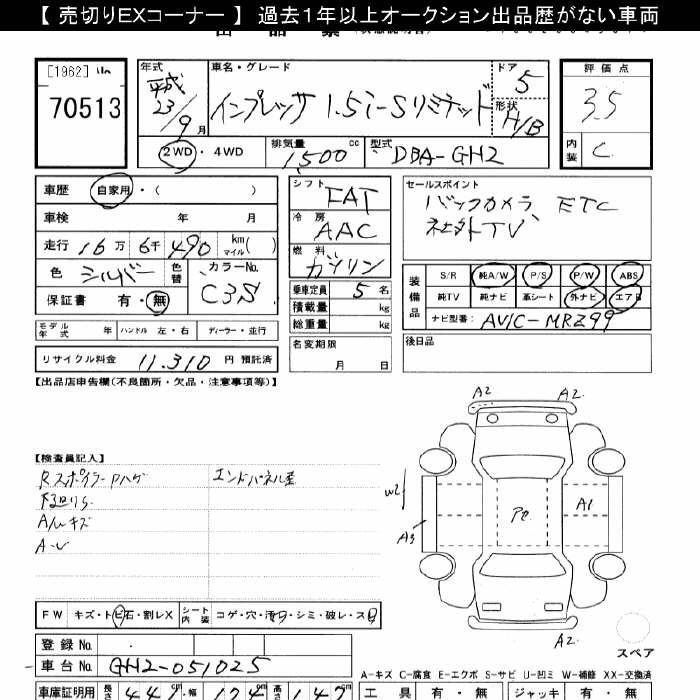 【 売切りEXコーナー 】 過去1年以上オークション出品歴がない車両
[1962]
70513
年式 平成 23/9月
車名・グレード インプレッサ 1.5i-Sリミテッド
ドア 5
形状 H/B
評価点 3.5
内装 C
2WD・4WD
排気量 1,500 cc
型式 DBA-GH2
車歴 自家用・( )
車検 年 月
走行 16万 6千 490 km マイル( )
色 シルバー 色替 カラーNo. C3S
保証書 有・無
シフト FAT
冷房 AAC
燃料 ガソリン
乗車定員 5 名
積載量 kg
総重量 kg
セールスポイント
バックカメラ、ETC
社外TV
装備品 S/R 純A/W P/S P/W ABS
純TV 純ナビ 革シート 外ナビ エアB
ナビ型番: AVIC-MRZ99
モデル年式 年 ハンドル 左・右 ディーラー・並行
リサイクル料金 11,310 円 預託済
名変期限 月 日
後日品
【出品店申告欄(不良箇所・欠品・注意事項等)】
【検査員記入】
Rスポイラー Pハゲ エンドパネル歪
A/Wキズ
A-U
A2 A2
W2 A3 A1
A2
FW キズ・トビ石・割レX シート内装 コゲ・穴・汚レ・シミ・破レ・スレ
スペア
登録No.
車台No. GH2-051025
A-キズ C-腐食 E-エクボ S-サビ U-凹ミ W-補修 XX-交換済
車庫証明用 長さ 447cm 幅 174cm 高さ 147cm
工具 有・無 ジャッキ 有・無